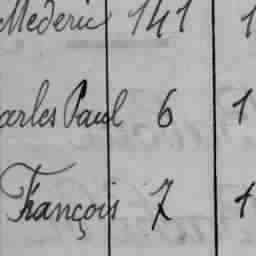 Mederic 141 1
arles Paul 6 1
François 7 1